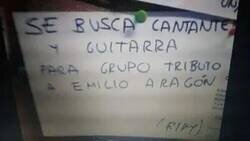 SE BUSCA CANTANTE
Y GUITARRA
PARA GRUPO TRIBUTO
A EMILIO ARAGÓN